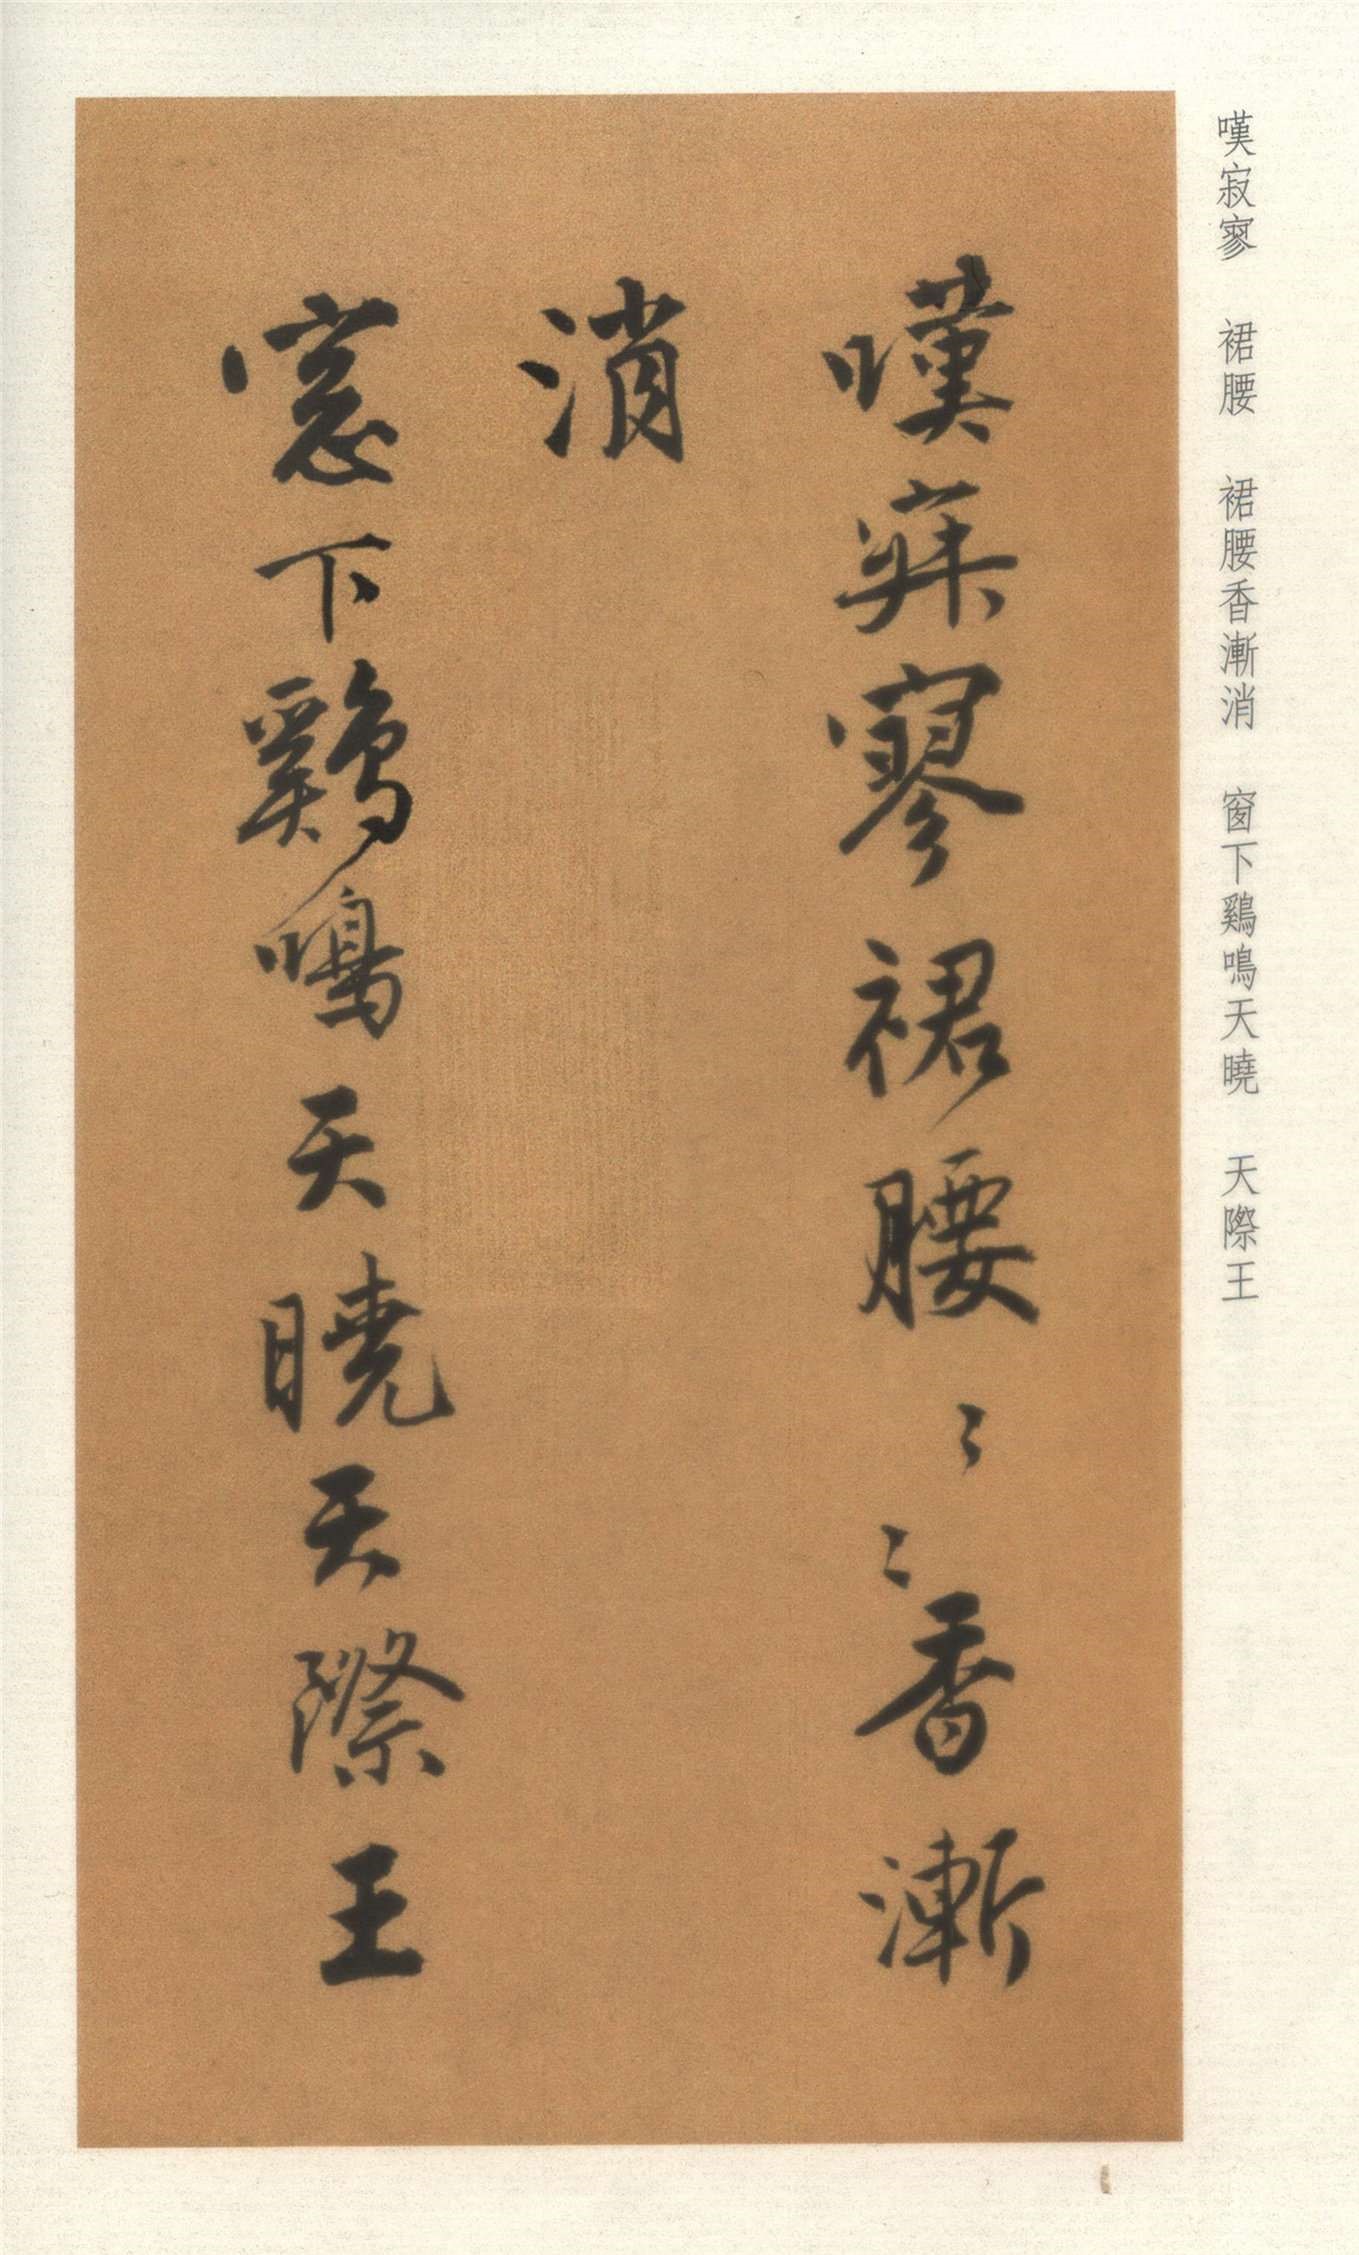 嘆寂寥 裙腰 裙腰香漸消 窗下鷄鳴天曉 天際王
嘆寂寥裙腰〻〻香漸
消
窓下鷄鳴天曉天際王